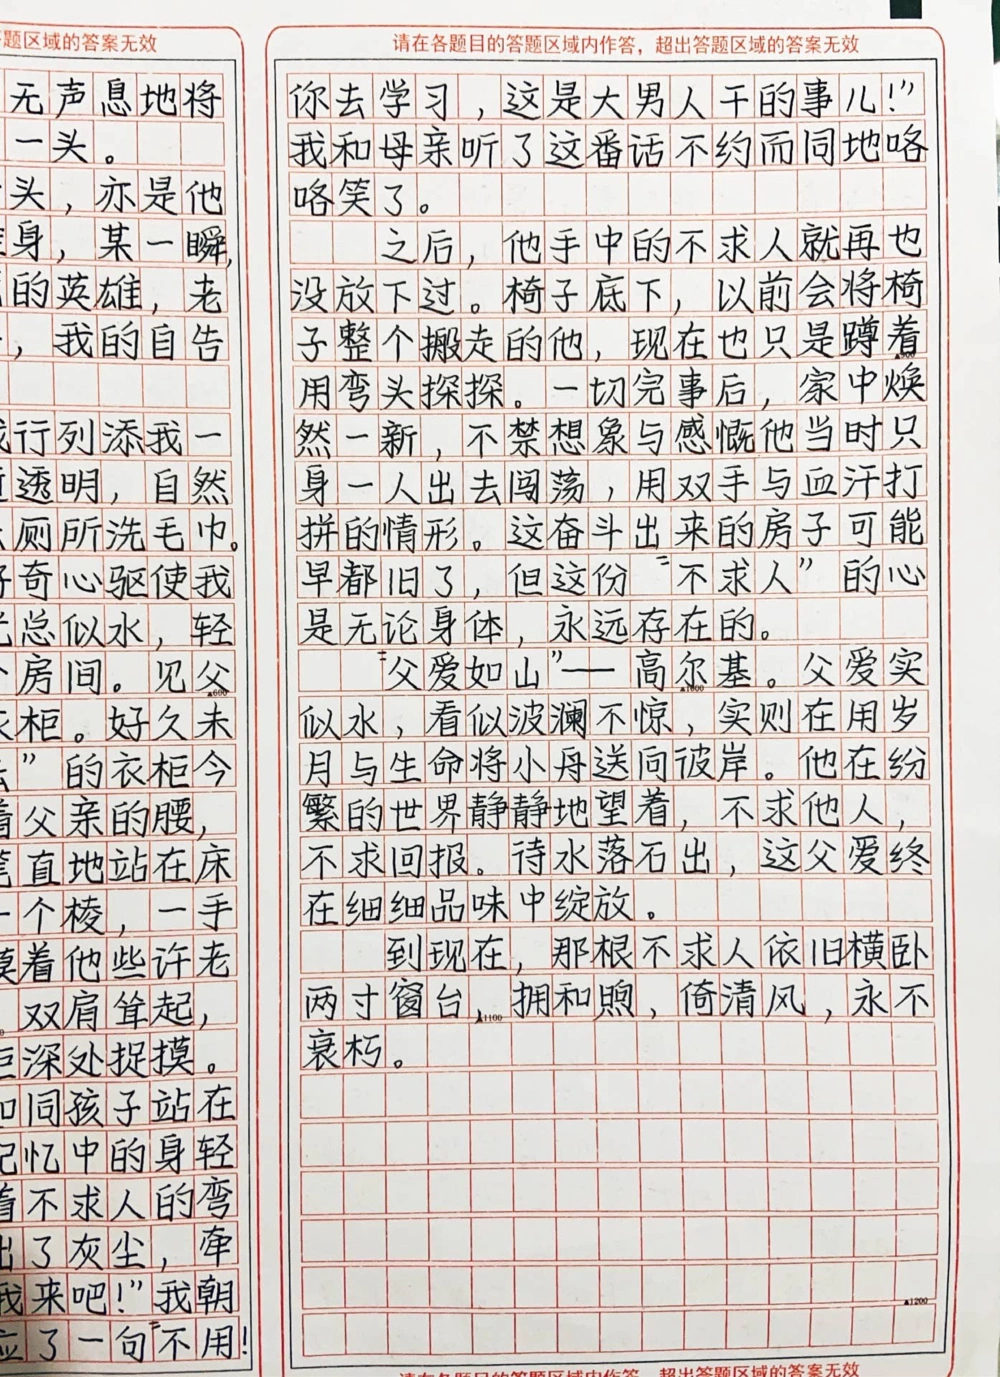 题区域的答案无效
无声息地将
一头。
头，亦是他
身，某一瞬，
的英雄，老
，我的自告
行列添我一
透明，自然
厕所洗毛巾。
奇心驱使我
总似水，轻
房间。见父
▲600
衣柜。好久未
”的衣柜今
着父亲的腰，
笔直地站在床
一个棱，一手
摸着他些许老
双肩耸起，
深处捉摸。
如同孩子站在
记忆中的身轻
着不求人的弯
出了灰尘，牵
我来吧！”我朝
应了一句“不用！
请在各题目的答题区域内作答，超出答题区域的答案无效
你去学习，这是大男人干的事儿！”
我和母亲听了这番话不约而同地咯
咯笑了。
之后，他手中的不求人就再也
没放下过。椅子底下，以前会将椅
子整个搬走的他，现在也只是蹲着
▲900
用弯头探探。一切完事后，家中焕
然一新，不禁想象与感慨他当时只
身一人出去闯荡，用双手与血汗打
拼的情形。这奋斗出来的房子可能
早都旧了，但这份“不求人”的心
是无论身体，永远存在的。
“父爱如山”——高尔基。父爱实
▲1000
似水，看似波澜不惊，实则在用岁
月与生命将小舟送向彼岸。他在纷
繁的世界静静地望着，不求他人，
不求回报。待水落石出，这父爱终
在细细品味中绽放。
到现在，那根不求人依旧横卧
两寸窗台，拥和煦，倚清风，永不
▲1100
衰朽。
▲1200
请在各题目的答题区域内作答，超出答题区域的答案无效